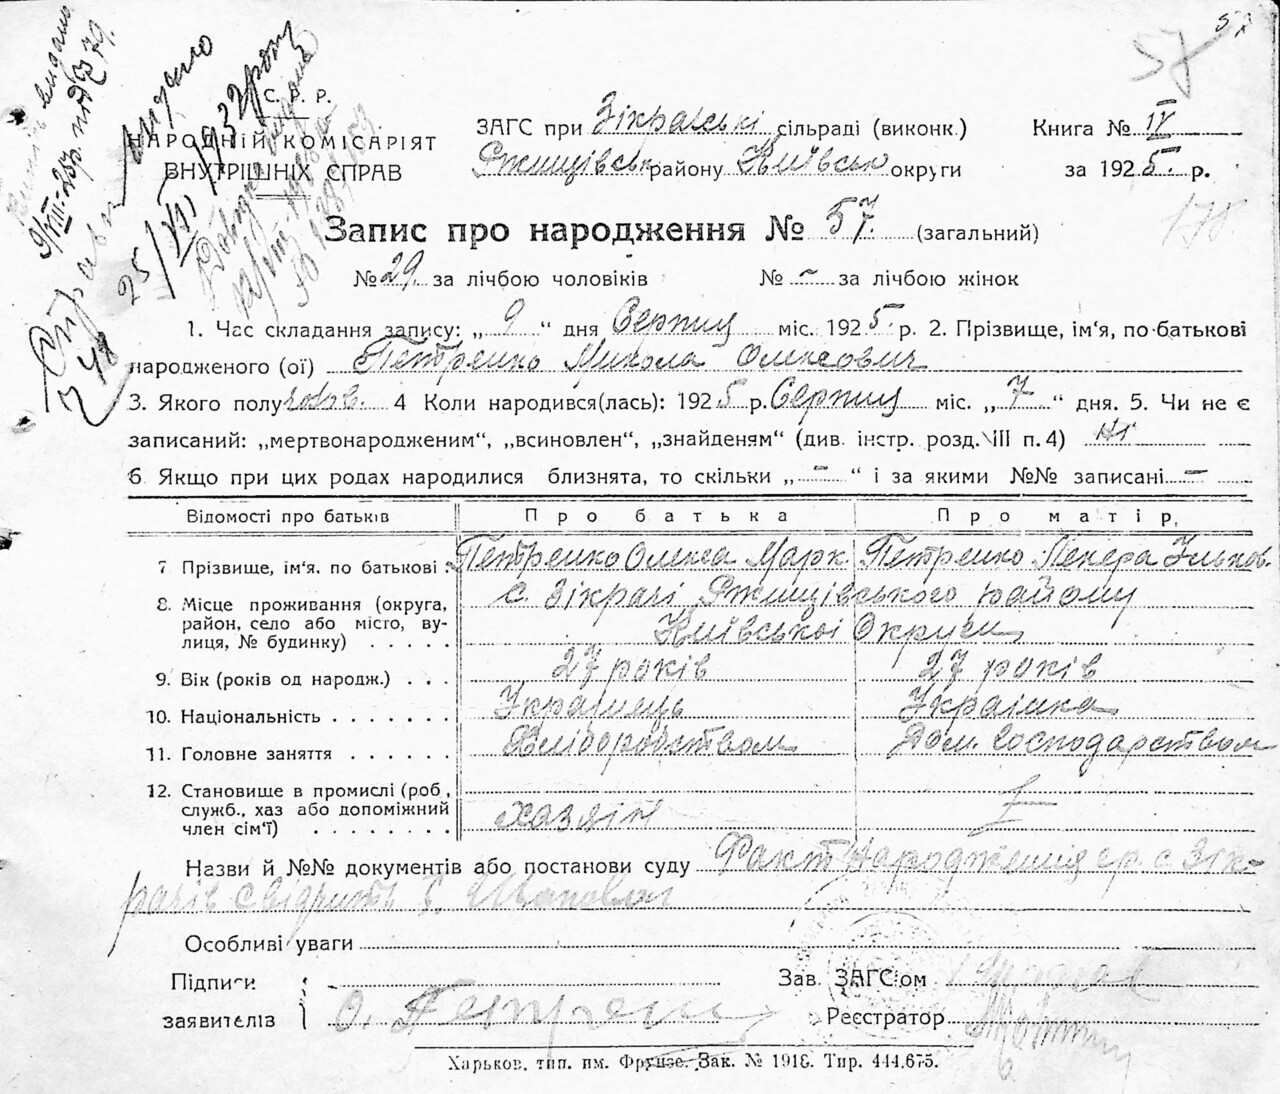 57
57
С. Р. Р.
НАРОДНІЙ КОМІСАРІЯТ
ВНУТРІШНІХ СПРАВ
ЗАГС при Зікрачські сільраді (виконк.)
Книга № IV
Ржищівськ району Київськ округи
за 1925 р.
178
Запис про народження № 57. (загальний)
№ 29 за лічбою чоловіків № – за лічбою жінок
1. Час складання запису: „ 9 “ дня Серпня міс. 1925 р. 2. Прізвище, ім'я, по-батькові
народженого (ої) Петренко Микола Олексович
3. Якого полу чолов. 4 Коли народився(лась): 1925 р. Серпня міс. „ 7 “ дня. 5. Чи не є
записаний: „мертвонародженим“, „всиновлен“, „знайденям“ (див. інстр. розд. VIII п. 4) ні
6 Якщо при цих родах народилися близнята, то скільки „ – “ і за якими №№ записані –
Відомості про батьків
Про батька
Про матір,
7 Прізвище, ім'я. по батькові : Петренко Олекса Марк. Петренко Ликера Ульков.
8. Місце проживання (округа, с. Зікрачі Ржищівського району
район, село або місто, ву-
лиця, № будинку) . . . . . Київської Округи
9. Вік (років од народж.) . . . 27 років 27 років
10. Національність . . . . . . . Українець Українка
11. Головне заняття . . . . . . Хліборобством Дом. Господарством
12. Становище в промислі (роб,
служб., хаз або допоміжний
член сім'ї) . . . . . . . . хазяїн
Назви й №№ документів або постанови суду Факт народження гр. с. Зік-
рачів свідчить
Особливі уваги
Підписи
заявителів О. Петренко
Зав. ЗАГС'ом
Реєстратор
Харьков, тип. им. Фрунзе. Зак. № 1918. Тир. 444.675.